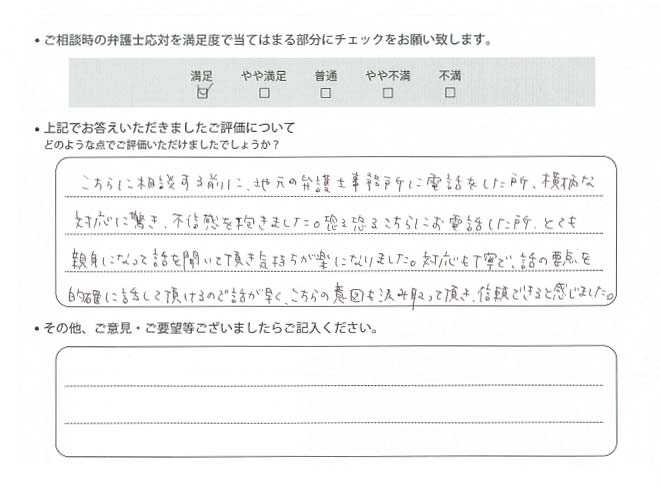 • ご相談時の弁護士応対を満足度で当てはまる部分にチェックをお願い致します。
満足 やや満足 普通 やや不満 不満
☑ □ □ □ □
• 上記でお答えいただきましたご評価について
どのような点でご評価いただけましたでしょうか？
こちらに相談する前に、地元の弁護士事務所に電話をした所、横柄な
対応に驚き、不信感を抱きました。恐る恐るこちらにお電話した所、とても
親身になって話を聞いて頂き気持ちが楽になりました。対応も丁寧で、話の要点を
的確に話して頂けるので話が早く、こちらの意図も汲み取って頂き、信頼できると感じました。
• その他、ご意見・ご要望等ございましたらご記入ください。